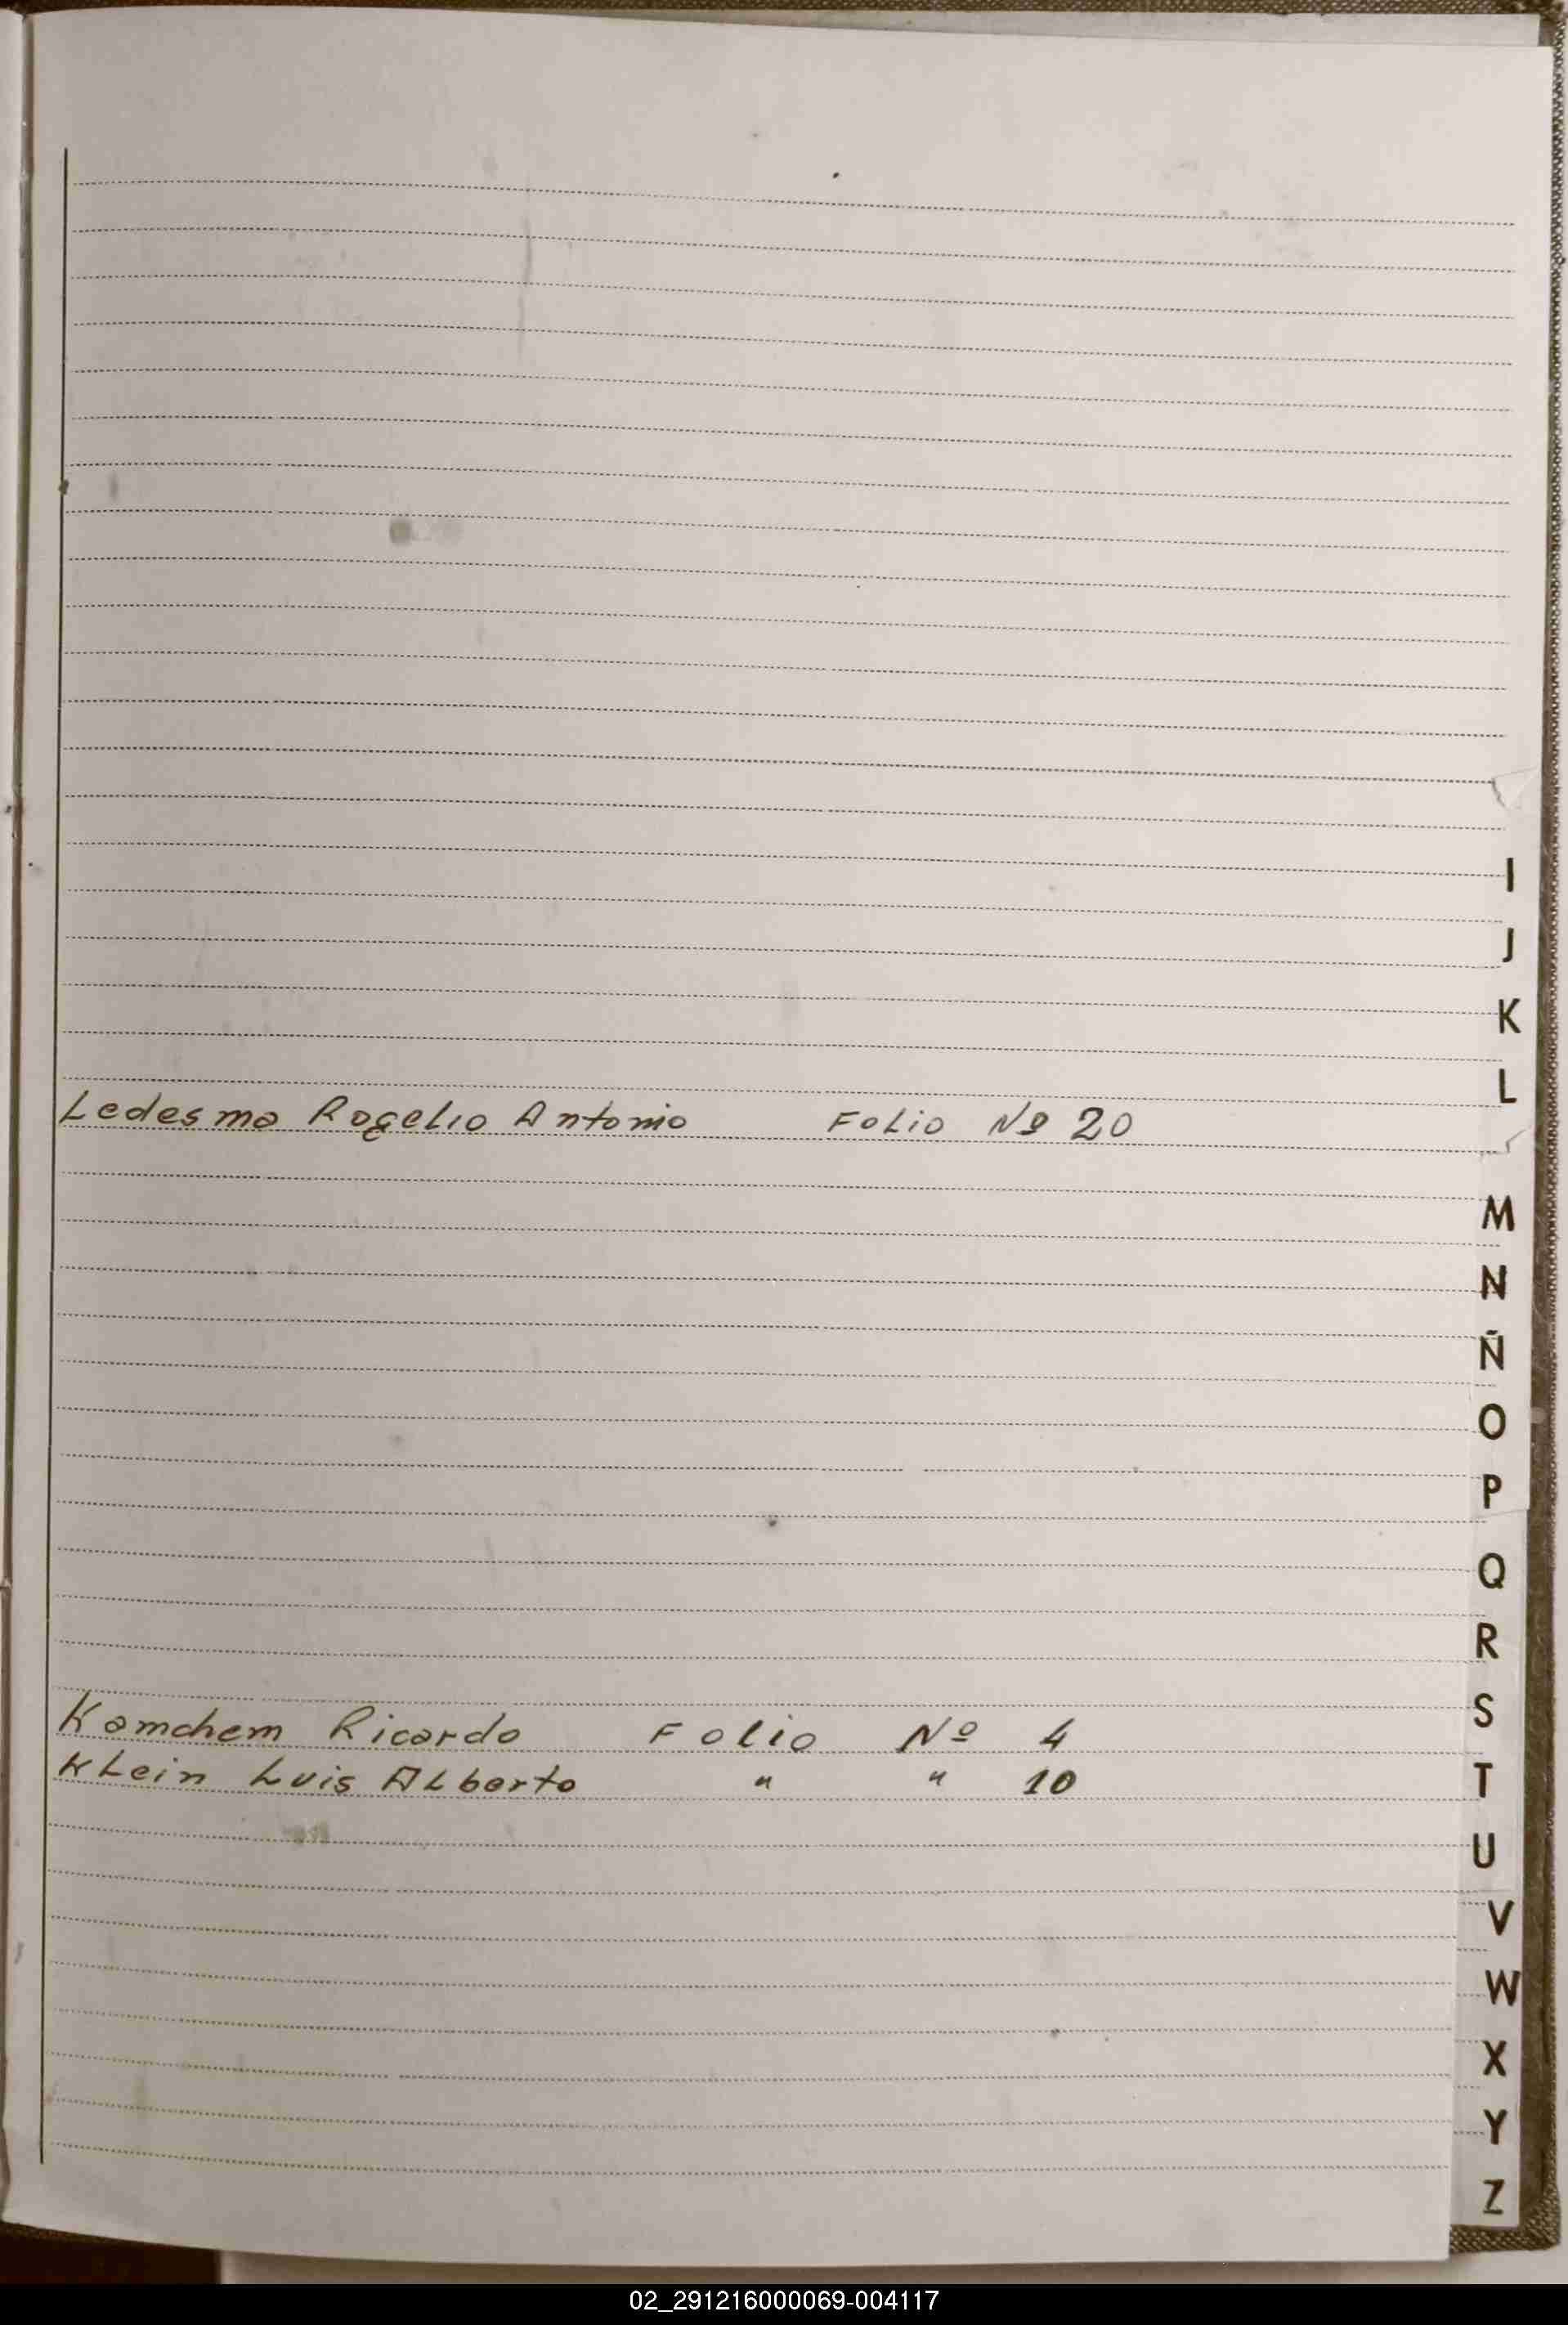 I
J
K
L
Ledesma Rogelio Antonio Folio Nº 20
M
N
Ñ
O
P
Q
R
S
Kamchem Ricardo Folio Nº 4
T
Klein Luis Alberto " " 10
U
V
W
X
Y
Z
02_291216000069-004117